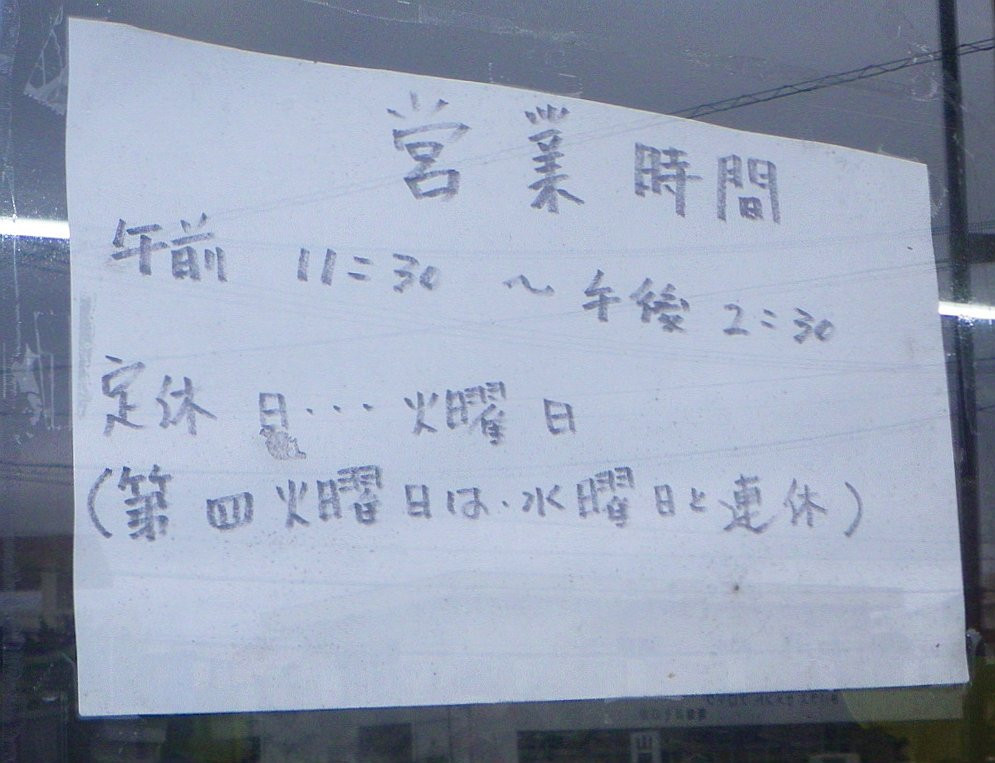 営業時間
午前 11:30 ~ 午後 2:30
定休日・・・火曜日
(第四火曜日は、水曜日と連休)